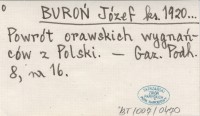 BUROŃ Józef ks. 1920...
Powrót orawskich wygnań-
ców z Polski. — Gaz. Podh.
8, nr 16.